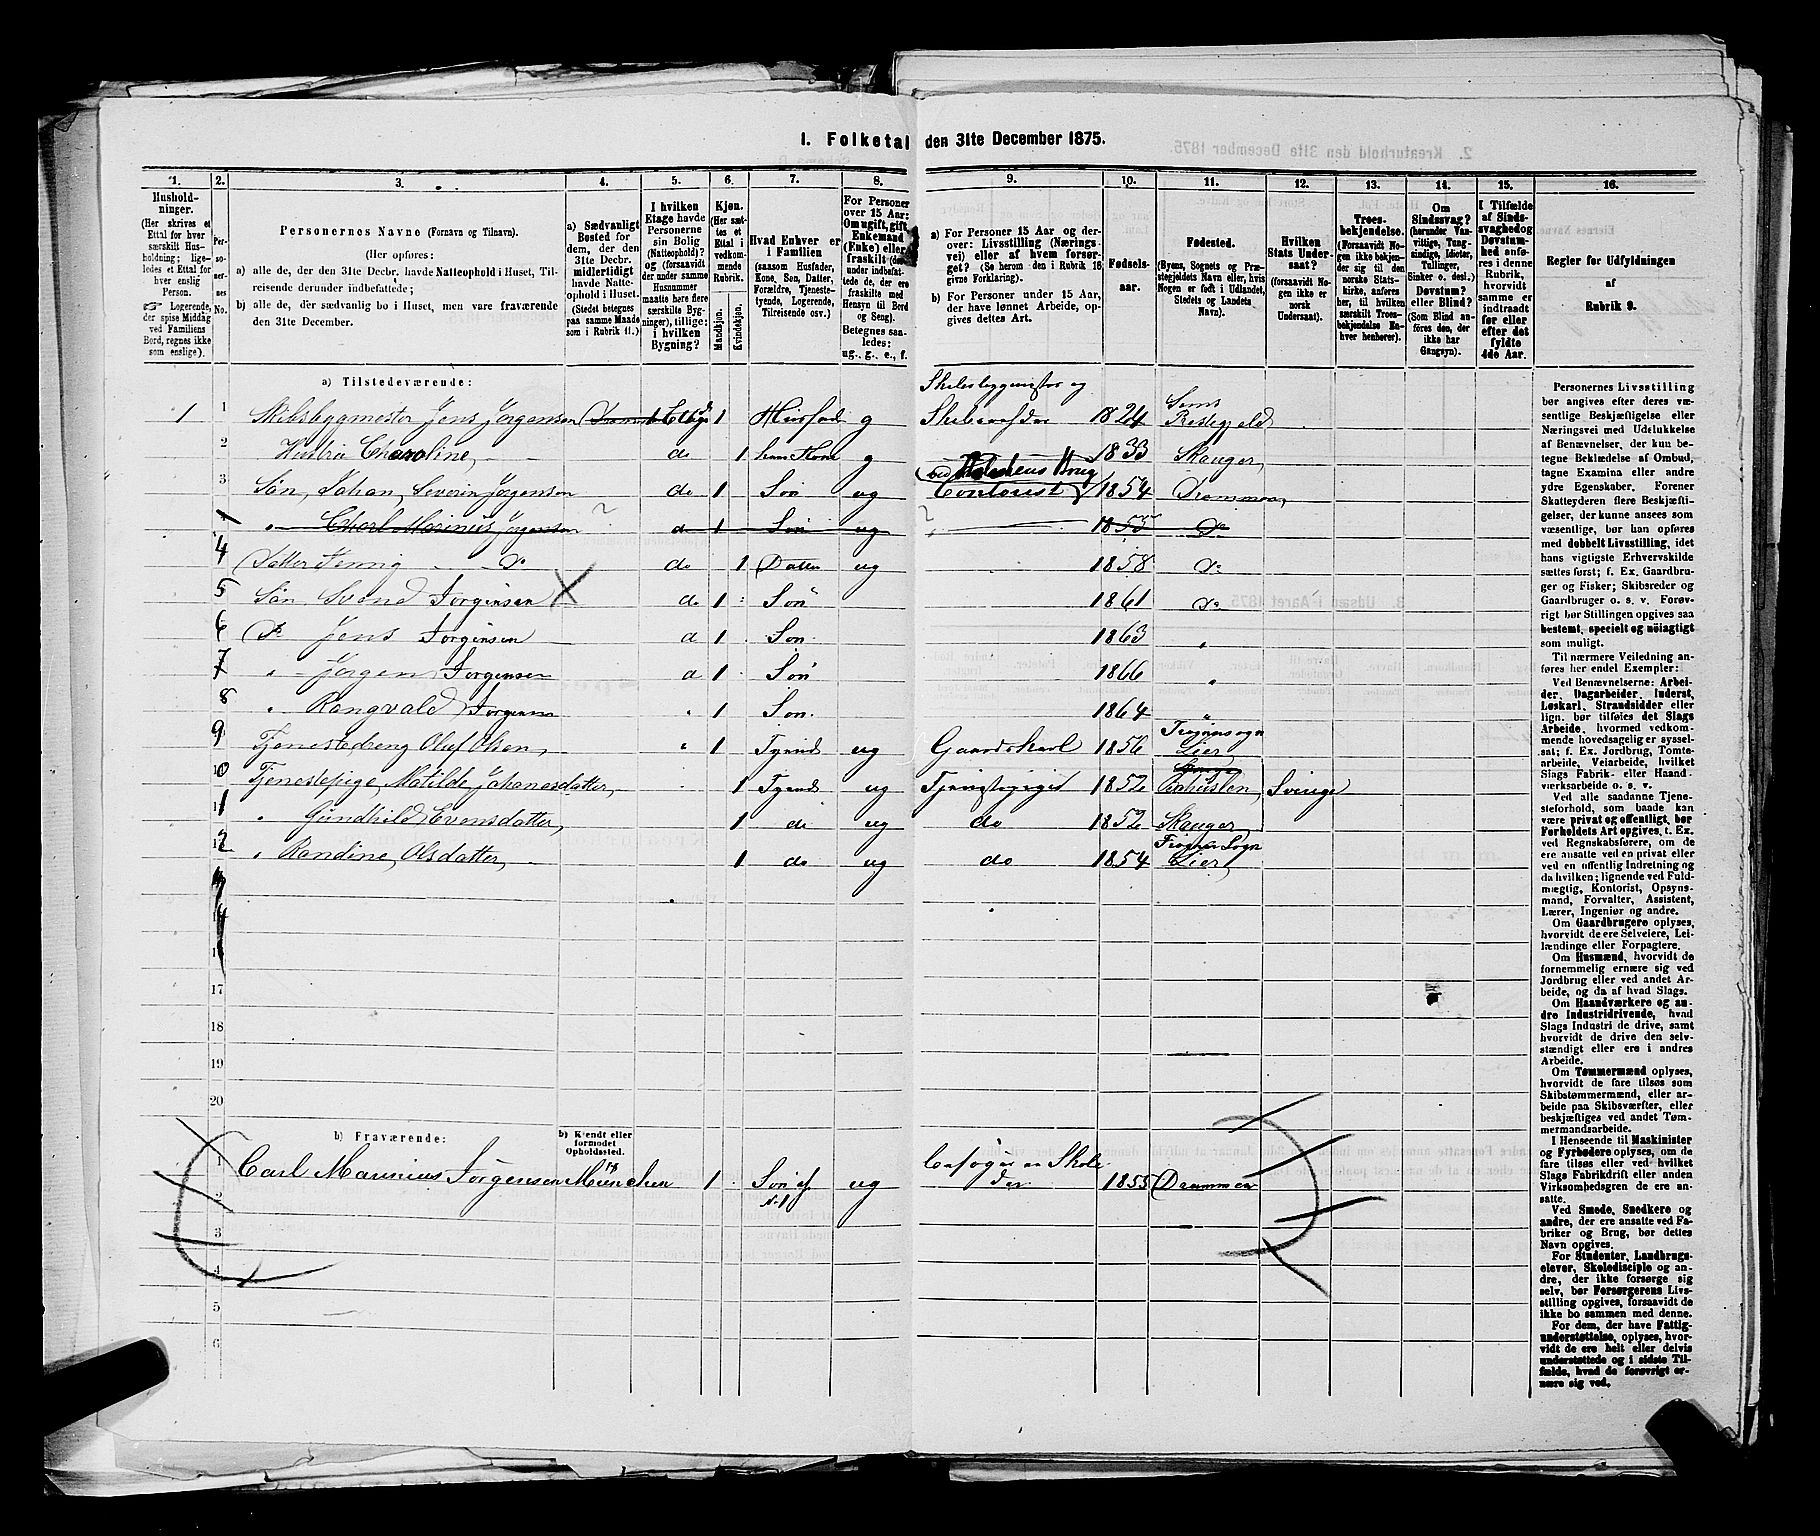 I. Folketal den 31te December 1875.
1. 2. 3. 4. 5. 6. 7. 8. 9. 10. 11. 12. 13. 14. 15. 16.
Husholdninger.
(Her skrives et Ettal for hver særskilt Husholdning; ligeledes et Ettal for hver enslig Person.
☞ Logerende, der spise Middag ved Familiens Bord, regnes ikke som enslige).
Personernes No.
Personernes Navne (Fornavn og Tilnavn).
(Her opføres:
a) alle de, der den 31te Decbr. havde Natteophold i Huset, Tilreisende derunder indbefattede;
b) alle de, der sædvanlig bo i Huset, men vare fraværende den 31te December.
a) Sædvanligt Bosted for dem, der den 31te Decbr. midlertidigt havde Natteophold i Huset.
(Stedet betegnes paa samme Maade som i Rubrik 11.)
I hvilken Etage havde Personerne sin Bolig (Natteophold)? og (forsaavidt der under samme Husnummer maatte høre flere særskilte Bygninger), tillige: i hvilken Bygning?
Kjøn.
(Her sættes et Ettal i vedkommende Rubrik.
Mandkjøn. Kvindekjøn.
Hvad Enhver er i Familien
(saasom Husfader, Kone, Søn, Datter, Forældre, Tjenestetyende, Logerende, Tilreisende osv.)
For Personer over 15 Aar: Om ugift, gift, Enkemand (Enke) eller fraskilt (derunder indbefattede de, der ere fraskilte med Hensyn til Bord og Seng).
Betegnes saaledes: ug., g., e., f.
a) For Personer 15 Aar og derover: Livsstilling (Næringsvei) eller af hvem forsørget? (Se herom den i Rubrik 16 givne Forklaring).
b) For Personer under 15 Aar, der have lønnet Arbeide, opgives dettes Art.
Fødselsaar.
Fødested.
(Byens, Sognets og Præstegjeldets Navn eller, hvis Nogen er født i Udlandet, Stedets og Landets Navn).
Hvilken Stats Undersaat?
(forsaavidt Nogen ikke er norsk Undersaat).
Troesbekjendelse.
(Forsaavidt Nogen ikke bekjender sig til den norske Statskirke, anføres her, til hvilken særskilt Troesbekjendelse Enhver henhører).
Om Sindssvag? (herunder Vanvittige, Tungsindige, Idioter, Tullinger, Sinker o. desl.) Døvstum? eller Blind? (Som Blind anføres den, der ikke har Gangsyn).
I Tilfælde af Sindssvaghed og Døvstumhed anføres i denne Rubrik, hvorvidt samme er indtraadt før eller efter det fyldte 4de Aar.
Regler for Udfyldningen af Rubrik 9.
a) Tilstedeværende:
Skibsbyggmester og
1 1 Skibsbygmester Jens Jørgensen 1 Etage 1 Husfad g 1824 Sems Præstegjeld
2 Hustru Charoline, do 1 g 1833 Skauger,
ved Brug
3 Søn, Johan Severin Jørgensen do 1 Søn ug Contorist 1854 Drammen,
" Charl Marinus Jørgensen d 1 Søn ug 1855 Do
4 Datter do 1 Datter ug 1858 Do
5 Søn Svend Jørgensen do 1 Søn 1861 Do
6 Do Jens Jørgensen d 1 Søn 1863 "
7 " Jørgen Jørgensen d 1 Søn 1866 "
8 " Rangvald Jørgensen " 1 Søn 1864 "
9 Tjenestedreng Oluf Olsen, " 1 Tyende ug Gaardskarl 1856 Lier
10 Tjenestepige Matilde Johanesdatter, 1 Tyende ug Tjenestepige 1852 Sverige
11 " Gundhild Evensdatter, 1 do ug do 1852 Skauger,
12 " Randine Olsdatter, 1 do ug do 1854 Frogner Sogn Lier,
17
18
19
20
b) Fraværende:
b) Kjendt eller formodet Opholdssted.
1 Carl Marinius Jørgensen München 1 Søn af No 1 ug Besøger en Skole der 1855 Drammen
2
3
4
5
6
Personernes Livsstilling bør angives efter deres væsentlige Beskjæftigelse eller Næringsvei med Udelukkelse af Benævnelser, der kun betegne Beklædelse af Ombud, tagne Examina eller andre ydre Egenskaber. Forener Skatteyderen flere Beskjæftigelser, der kunne ansees som væsentlige, bør han opføres med dobbelt Livsstilling, idet hans vigtigste Erhvervskilde sættes først; f. Ex. Gaardbruger og Fisker; Skibsreder og Gaardbruger o. s. v. Forøvrigt bør Stillingen opgives saa bestemt, specielt og nöiagtigt som muligt.
Til nærmere Veiledning anføres her endel Exempler:
Ved Benævnelserne: Arbeider, Dagarbeider, Inderst, Løskarl, Strandsidder eller lign. bør tilføies det Slags Arbeide, hvormed vedkommende hovedsagelig er sysselsat; f. Ex. Jordbrug, Tomtearbeide, Veiarbeide, hvilket Slags Fabrik- eller Haandværksarbeide o. s. v.
Ved alle saadanne Tjenesteforhold, som baade kan være privat og offentligt, bør Forholdets Art opgives, t. Ex. ved Regnskabsførere, om de ere ansatte ved en privat eller ved en offentlig Indretning og da hvilken; lignende ved Fuldmægtig, Kontorist, Opsynsmand, Forvalter, Assistent, Lærer, Ingeniør og andre.
Om Gaardbrugere oplyses, hvorvidt de ere Selveiere, Leilændinge eller Forpagtere.
Om Husmænd, hvorvidt de fornemmelig ernære sig ved Jordbrug eller ved andet Arbeide, og da af hvad Slags.
Om Haandværkere og andre Industridrivende, hvad Slags Industri de drive, samt hvorvidt de drive den selvstændigt eller ere i andres Arbeide.
Om Tømmermænd oplyses, hvorvidt de fare tilsøs som Skibstømmermænd, eller arbeide paa Skibsværfter, eller beskjæftiges ved andet Tømmermandsarbeide.
I Henseende til Maskinister og Fyrbødere oplyses, om de fare tilsøs eller ved hvilket Slags Fabrikdrift eller anden Virksomhedsgren de ere ansatte.
Ved Smede, Snedkere og andre, der ere ansatte ved Fabriker og Brug, bør dettes Navn opgives.
For Studenter, Landbrugselever, Skoledisciple og andre, der ikke forsørge sig selv, bør Forsørgerens Livsstilling opgives, forsaavidt de ikke bo sammen med denne.
For dem, der have Fattigunderstøttelse, oplyses, hvorvidt de ere helt eller delvis understøttede og i sidste Tilfælde, hvad de forøvrigt ernære sig ved.